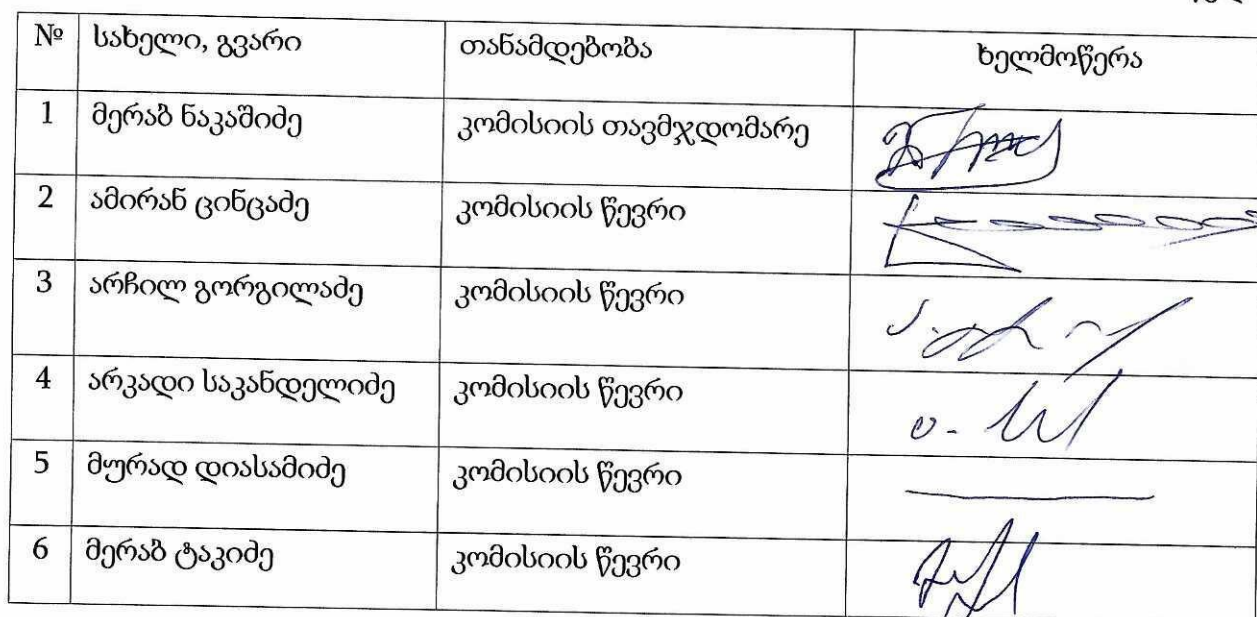 № სახელი, გვარი თანამდებობა ხელმოწერა
1 მერაბ ნაკაშიძე კომისიის თავმჯდომარე
2 ამირან ცინცაძე კომისიის წევრი
3 არჩილ გორგილაძე კომისიის წევრი
4 არკადი საკანდელიძე კომისიის წევრი
5 მურად დიასამიძე კომისიის წევრი
6 მერაბ ტაკიძე კომისიის წევრი